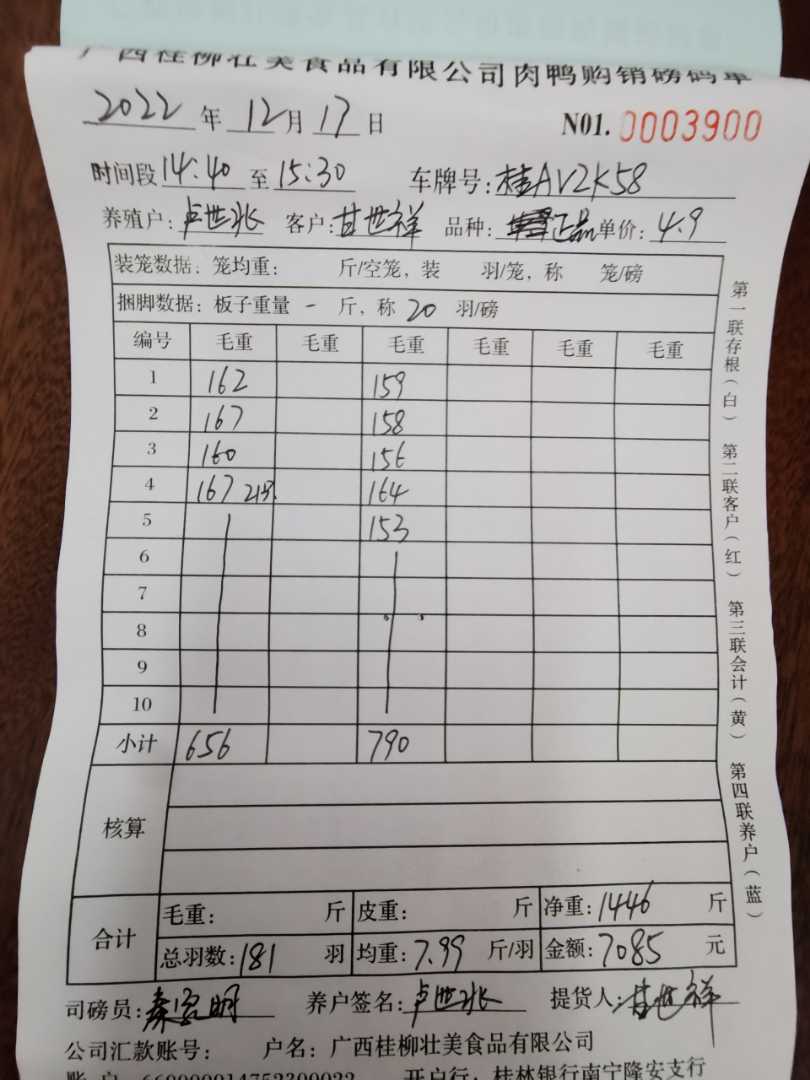 广西桂柳壮美食品有限公司肉鸭购销磅码单
2022 年 12 月 17 日 N01. 0003900
时间段 14:40 至 15:30 车牌号: 桂AV2K58
养殖户: 卢世兆 客户: 甘世祥 品种: 正品 单价: 4.9
装笼数据: 笼均重: 斤/空笼, 装 羽/笼, 称 笼/磅
捆脚数据: 板子重量 - 斤, 称 20 羽/磅
编号 毛重 毛重 毛重 毛重 毛重 毛重
1 162 159
2 167 158
3 160 156
4 167 21羽 164
5 153
6
7
8
9
10
小计 656 790
核算
合计 毛重: 斤 皮重: 斤 净重: 1446 斤
总羽数: 181 羽 均重: 7.99 斤/羽 金额: 7085 元
司磅员: 秦 明 养户签名: 卢世兆 提货人: 甘世祥
公司汇款账号: 户名: 广西桂柳壮美食品有限公司
账 户 660000014752300022 开户行: 桂林银行南宁隆安支行
第一联存根(白) 第二联客户(红) 第三联会计(黄) 第四联养户(蓝)